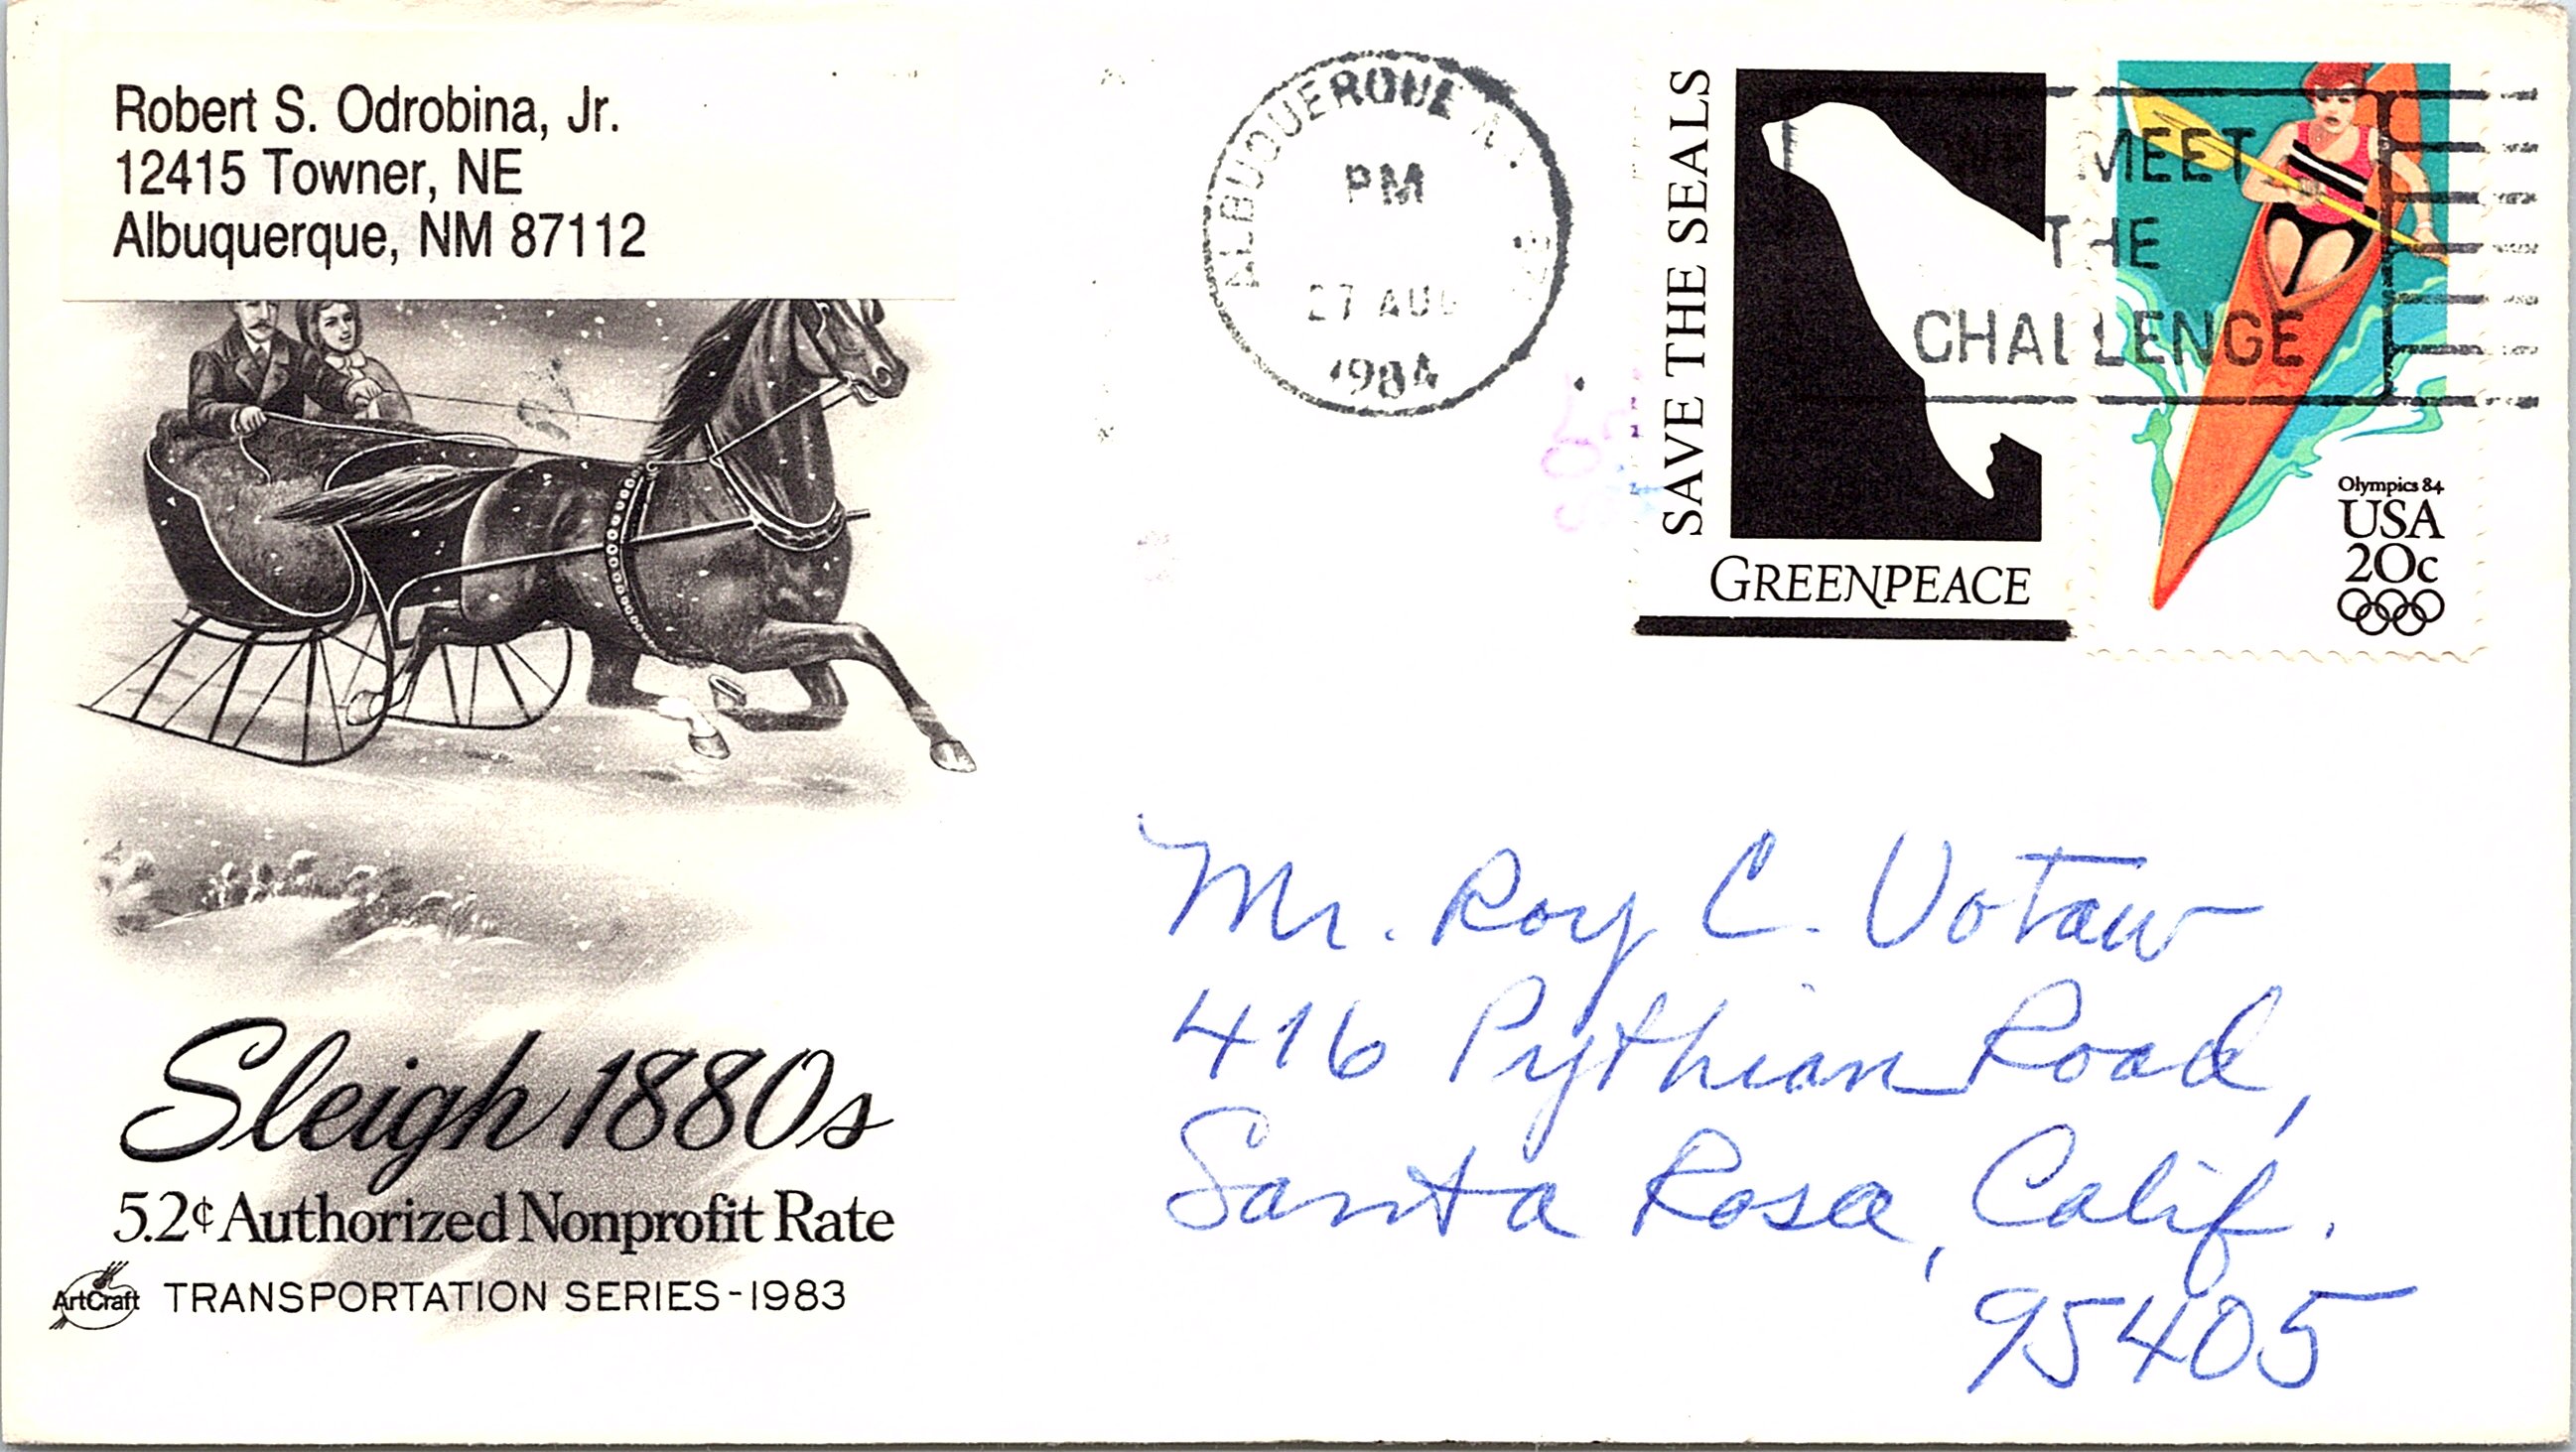 Robert S. Odrobina, Jr.
12415 Towner, NE
Albuquerque, NM 87112
ALBUQUERQUE N.
PM
27 AUG
1984
SAVE THE SEALS
GREENPEACE
MEET
THE
CHALLENGE
Olympics 84
USA
20c
Mr. Roy C. Votaw
416 Pythian Road,
Santa Rosa, Calif.
95405
Sleigh 1880s
5.2¢ Authorized Nonprofit Rate
ArtCraft TRANSPORTATION SERIES-1983